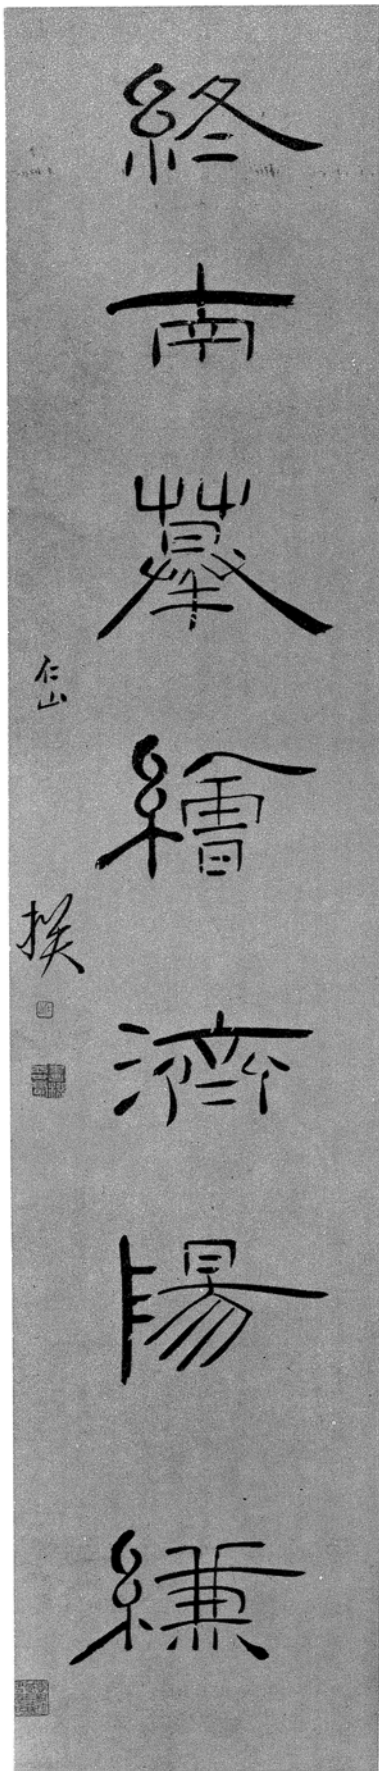 終南摹繪濟陽縑
仁山撰